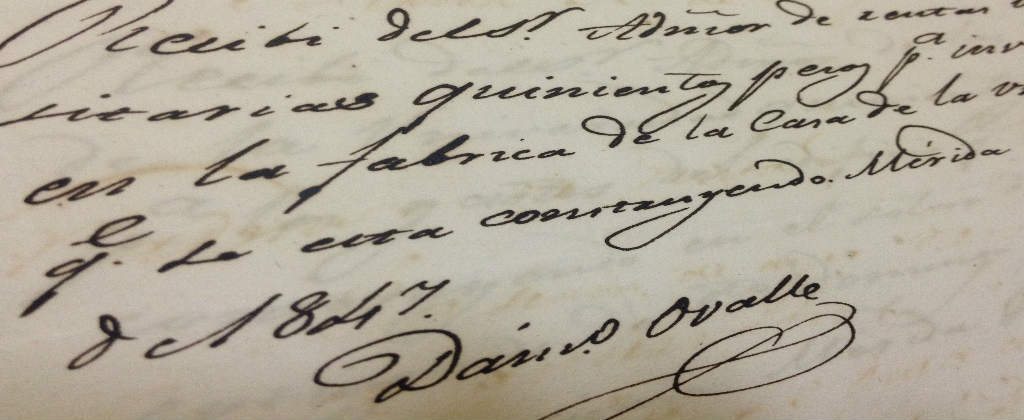 Recibi del Sr. Admor de rentas
sitarias quinientos pesos pa. inv
en la fabrica de la Casa de la
qe. se esta construyendo. Mérida
de 1847.
Ovalle